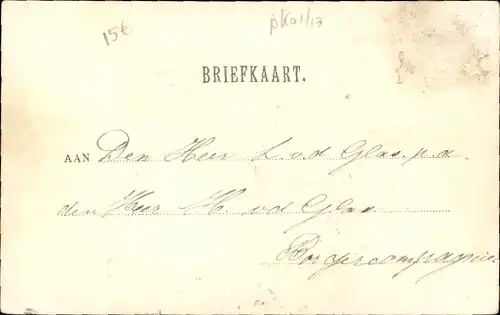 15€
pka1/13
BRIEFKAART.
AAN Den Heer L. v d Glas. p. a.
den Heer H. v d Glas
Borgercompagnie